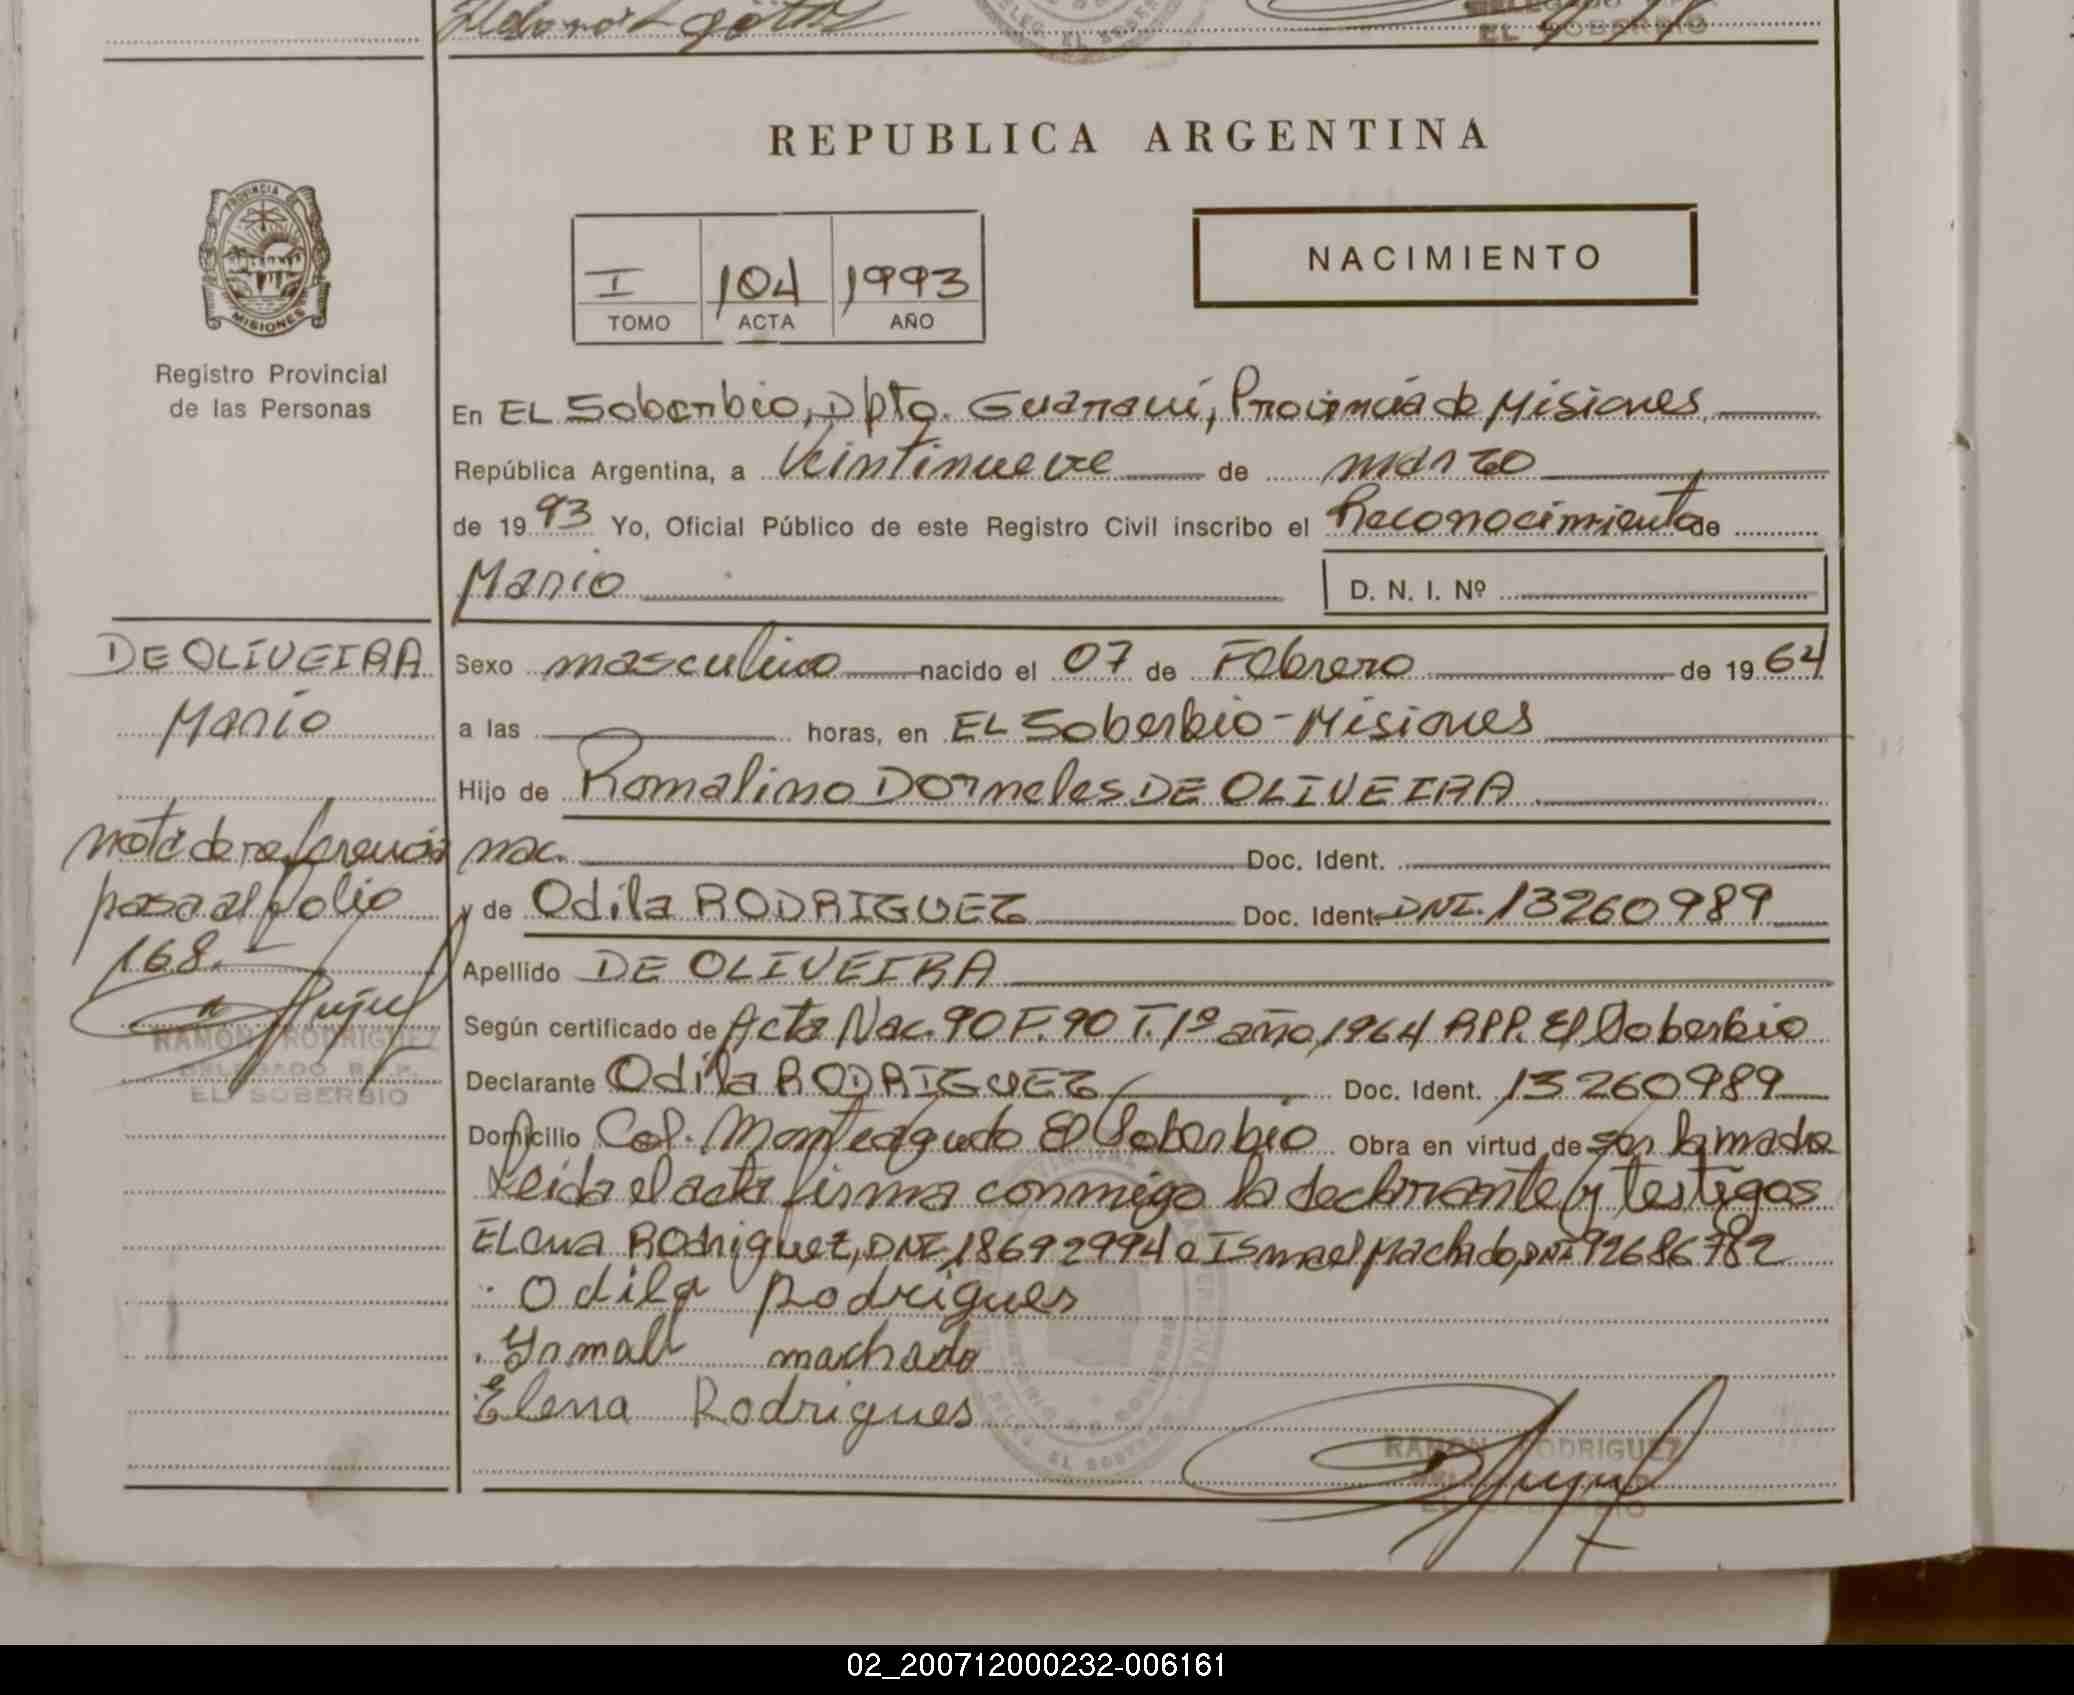 EL SOBERBIO
REPUBLICA ARGENTINA
PROVINCIA DE
MISIONES
Registro Provincial
de las Personas
I 104 1993
TOMO ACTA AÑO
NACIMIENTO
En EL Soberbio, Dpto. Guaraní, Provincia de Misiones
República Argentina, a Veintinueve de marzo
de 1993 Yo, Oficial Público de este Registro Civil inscribo el Reconocimiento de
Mario D. N. I. Nº
DE OLIVEIRA
Mario
nota de referencia
pasa al folio
168.-
RAMON RODRIGUEZ
DELEGADO R.P.P.
EL SOBERBIO
Sexo masculino nacido el 07 de Febrero de 1964
a las horas, en EL Soberbio - Misiones
Hijo de Romalino Dorneles DE OLIVEIRA
nac. Doc. Ident.
y de Odila RODRIGUEZ Doc. Ident. DNI. 13260989
Apellido DE OLIVEIRA
Según certificado de Acta Nac. 90 F. 90 T. 1º año 1964 RPP. El Soberbio
Declarante Odila RODRIGUEZ Doc. Ident. 13260989
Domicilio Col. Monteagudo El Soberbio Obra en virtud de ser la madre
Leida el acta firma conmigo la declarante y testigos
ELena Rodriguez, DNI. 18692994 e Ismael Machado, DNI 92686782
Odila Rodrigues
Ysmael machado
Elena Rodrigues
RAMON RODRIGUEZ
02_200712000232-006161